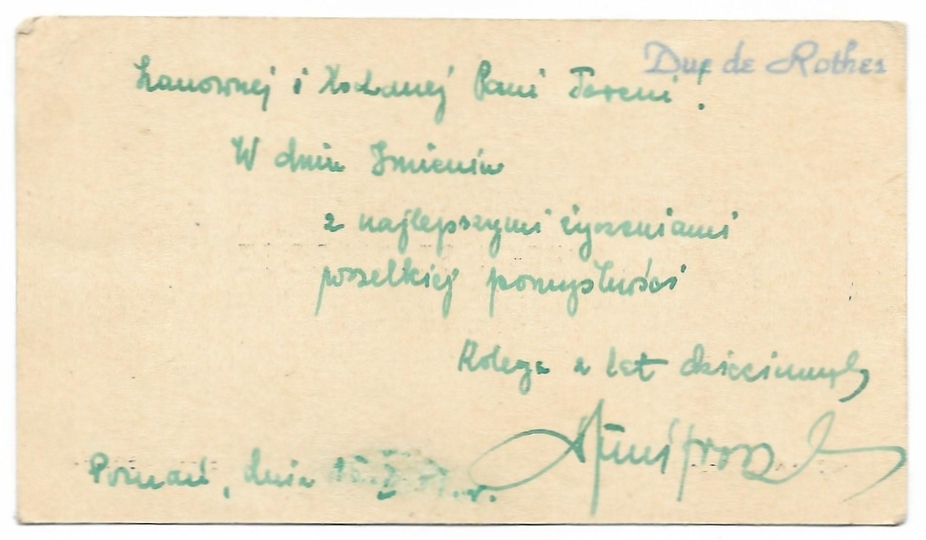 Duχ de Rothes
Szanownej i Kochanej Pani Tereni!
W dniu Imienin
z najlepszymi życzeniami
wszelkiej pomyślności
Kolega z lat dziecinnych
Poznań, dnia 15. X r.